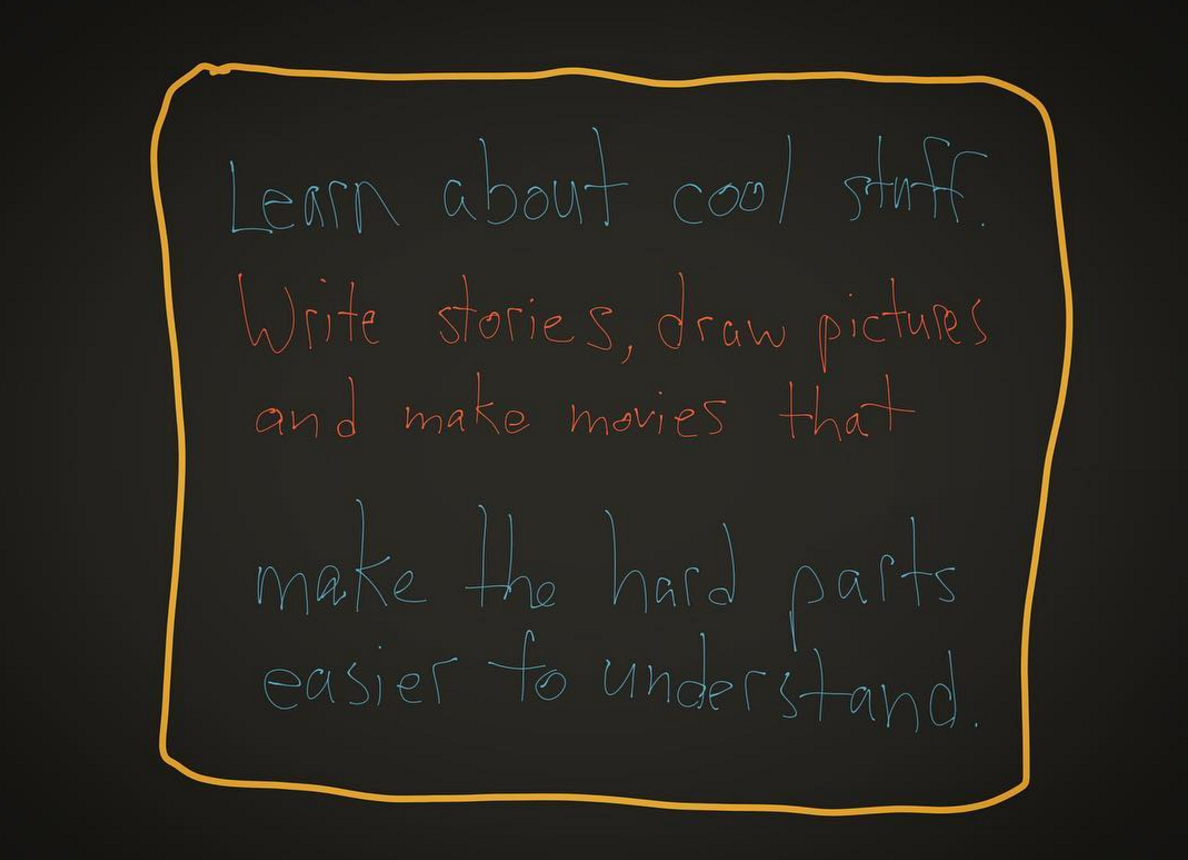 Learn about cool stuff.
Write stories, draw pictures
and make movies that
make the hard parts
easier to understand.